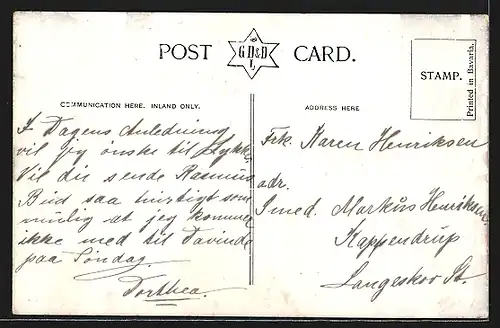 POST CARD.
G.D.&D.
L
STAMP.
Printed in Bavaria.
COMMUNICATION HERE. INLAND ONLY.
ADDRESS HERE
I Dagens Anledning
vil jeg ønske til Lykke,
Vil du sende Rasmus
Bud saa hurtigt som
mulig at jeg kommer
ikke med til Davinde
paa Søndag.
Dorthea.
Frk. Karen Henriksen
adr.
Smed. Markus Henriksen
Kappendrup
Langeskov St.